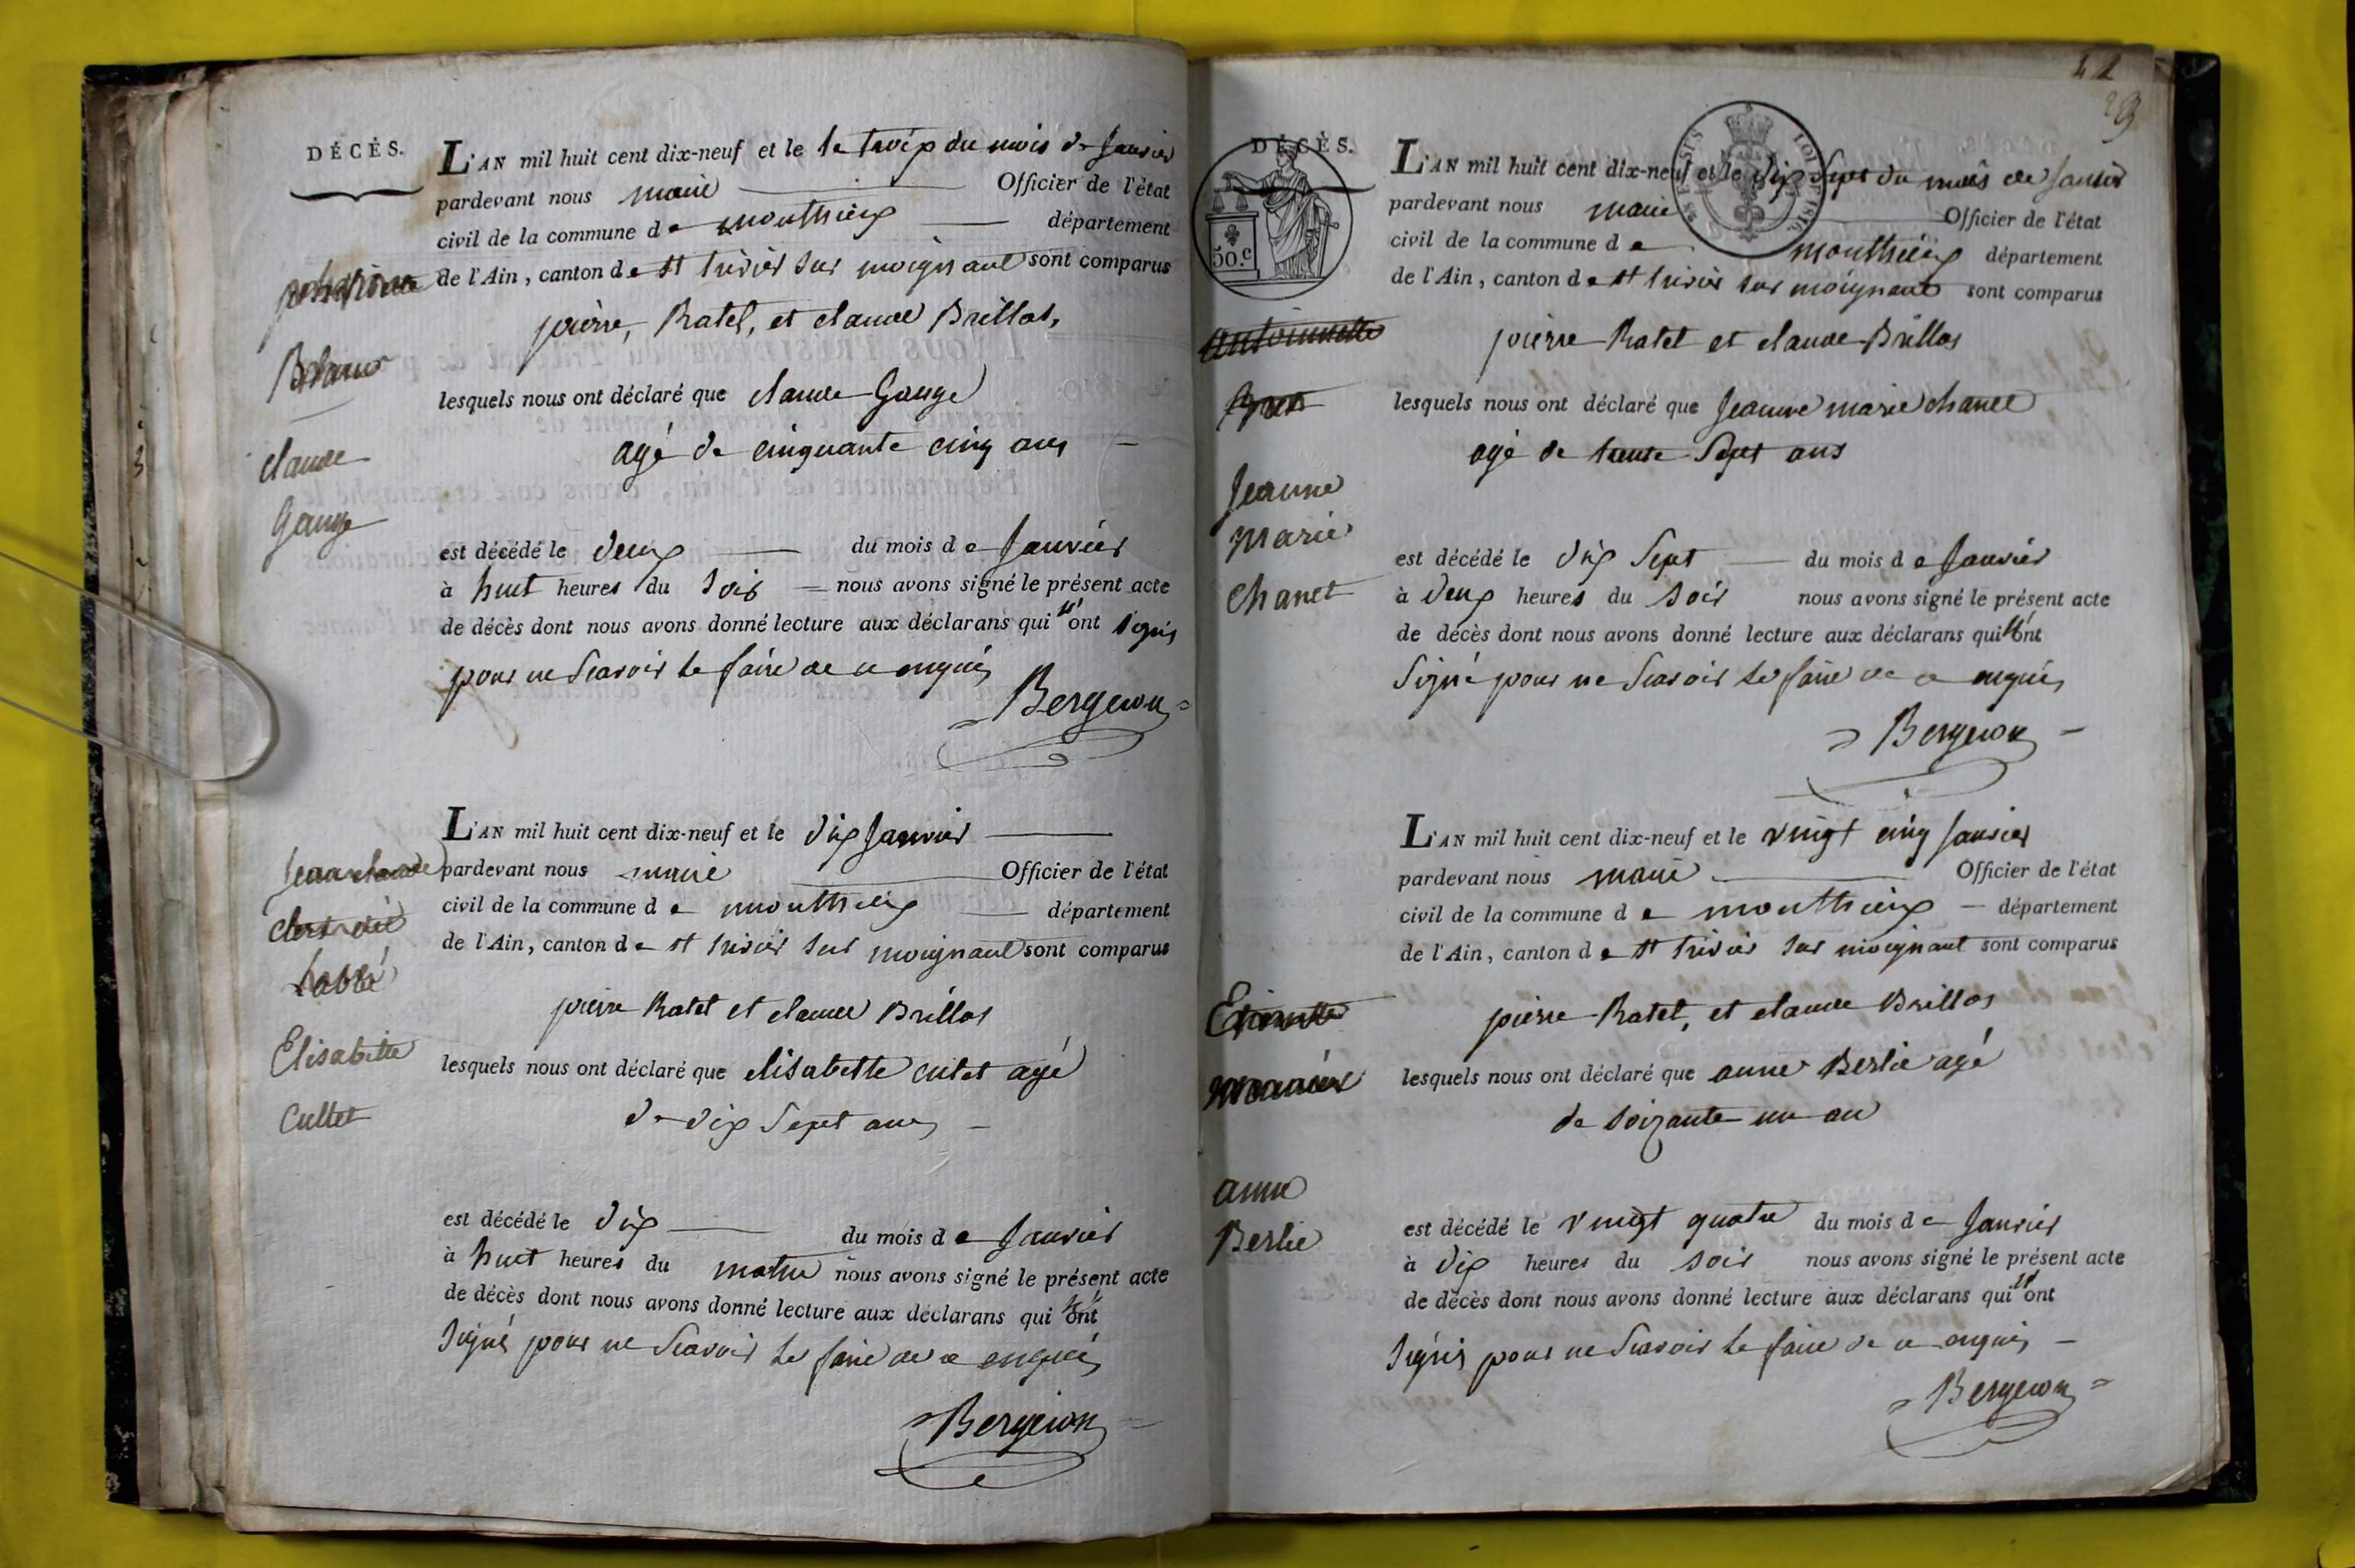 DÉCÈS.
L'AN mil huit cent dix-neuf et le le troix du mois de Janvier
pardevant nous maire Officier de l'état
civil de la commune de monthieux département
de l'Ain, canton de st trivier sur moignant sont comparus
pierre, Ratet, et claude Brillas,
lesquels nous ont déclaré que claude Gouge
agé de cinquante cinq ans
est décédé le deux du mois de Janvier
à huit heures du soir nous avons signé le présent acte
de décès dont nous avons donné lecture aux déclarans qui n'ont signés
pour ne Scavoir le faire de ce enquis
Bergeron
claude
Gouge
L'AN mil huit cent dix-neuf et le dix Janvier
pardevant nous maire Officier de l'état
civil de la commune de monthieux département
de l'Ain, canton de st trivier sur moignant sont comparus
pierre Ratet et claude Brillas
lesquels nous ont déclaré que elisabette cutet agé
de dix Sept ans
est décédé le dix du mois de Janvier
à huit heures du matin nous avons signé le présent acte
de décès dont nous avons donné lecture aux déclarans qui n'ont
signés pour ne Scavoir le faire de ce enquis
Bergeron
Jean claude
Elisabette
Cullet
42
29
DÉCÈS.
50.c
LOI DE 1816
L'AN mil huit cent dix-neuf et le dix Sept du mois de Janvier
pardevant nous maire Officier de l'état
civil de la commune de monthieux département
de l'Ain, canton de st trivier sur moignant sont comparus
pierre Ratet et claude Brillas
lesquels nous ont déclaré que Jeanne marie chanel
agé de trente Sept ans
est décédé le dix Sept du mois de Janvier
à deux heures du soir nous avons signé le présent acte
de décès dont nous avons donné lecture aux déclarans qui n'ont
Signé pour ne Scavoir le faire de ce enquis
Bergeron
antoinette
Jeanne
Marie
Chanet
L'AN mil huit cent dix-neuf et le vingt cinq Janvier
pardevant nous maire Officier de l'état
civil de la commune de monthieux département
de l'Ain, canton de st trivier sur moignant sont comparus
pierre Ratet, et claude Brillas
lesquels nous ont déclaré que anne Berlie agé
de soixante un an
est décédé le vingt quatre du mois de Janvier
à dix heures du soir nous avons signé le présent acte
de décès dont nous avons donné lecture aux déclarans qui n'ont
signés pour ne Scavoir le faire de ce enquis
Bergeron
anne
Berlie